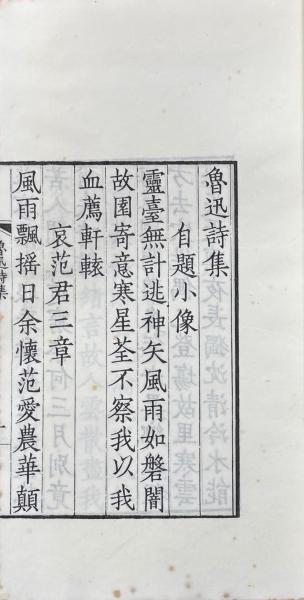 魯迅詩集
自題小像
靈臺無計逃神矢風雨如磐闇
故園寄意寒星荃不察我以我
血薦軒轅
哀范君三章
風雨飄搖日余懷范愛農華顛
魯迅詩集
一